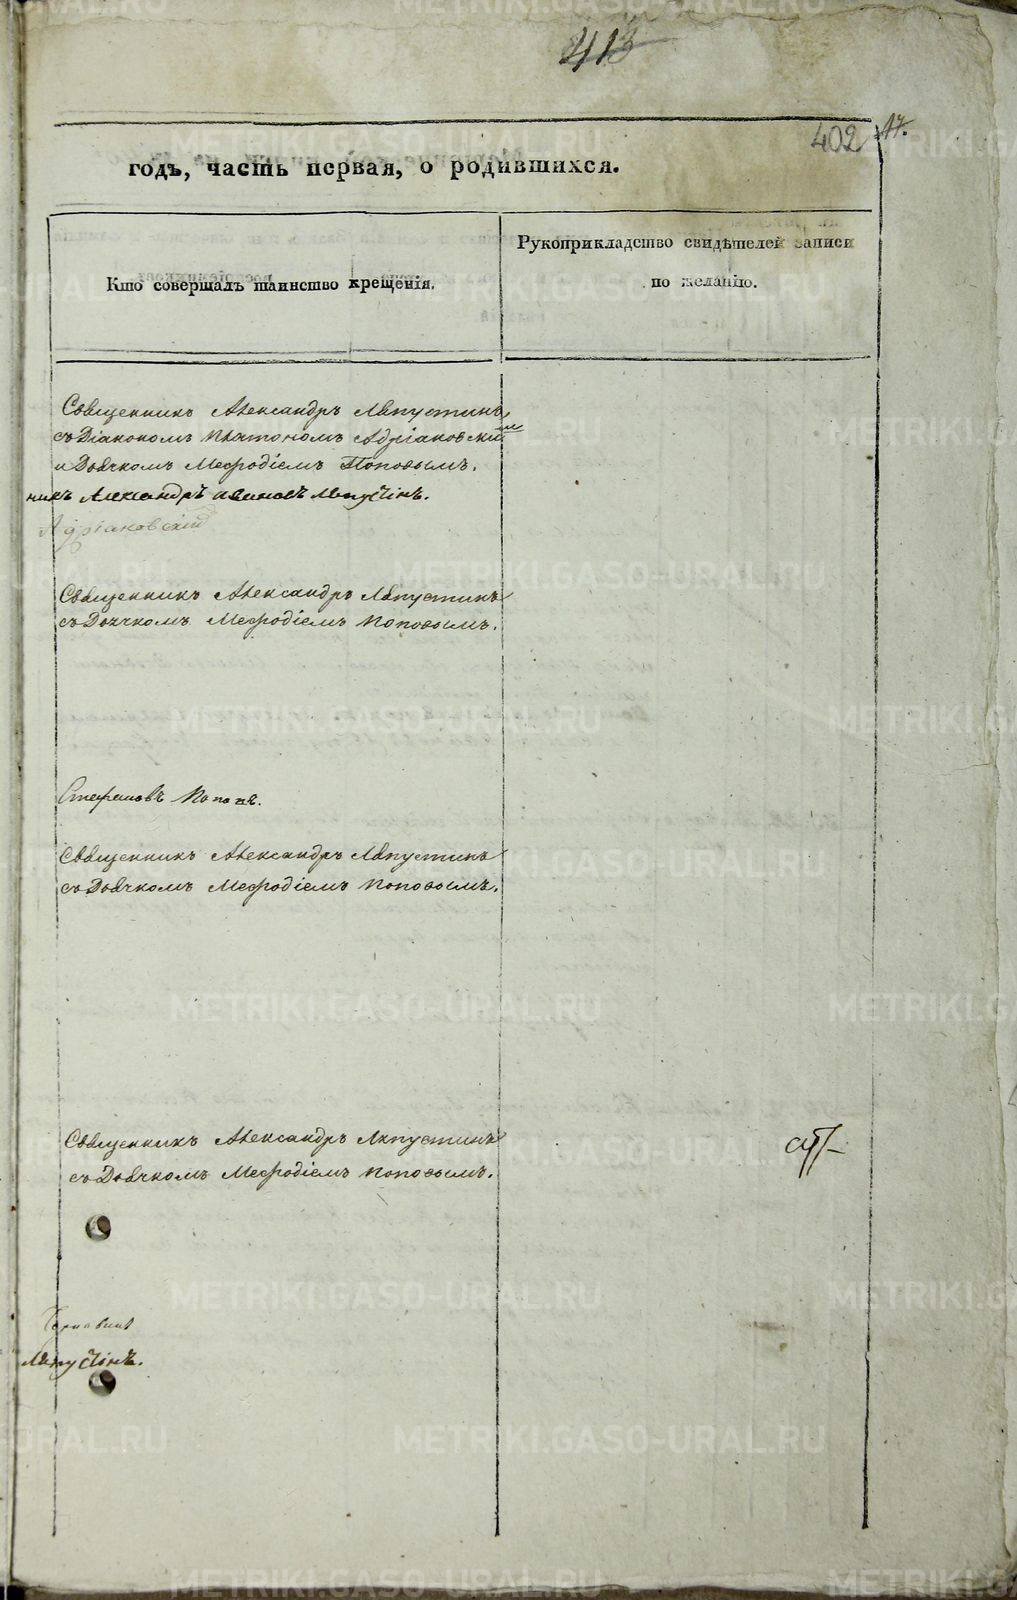 413
402 17.
годъ, часть первая, о родившихся.
Кто совершалъ таинство крещенія.
Рукоприкладство свидѣтелей записи
по желанію.
Священникъ Александръ Ляпустинъ
съ Діакономъ Платономъ Адріановскимъ
и Дьячкомъ Меѳодіемъ Поповымъ.
никъ Александръ Ляпустинъ.
Адріановскій
Священникъ Александръ Ляпустинъ
съ Дьячкомъ Меѳодіемъ Поповымъ.
Стефановъ Поповъ.
Священникъ Александръ Ляпустинъ
съ Дьячкомъ Меѳодіемъ Поповымъ.
Священникъ Александръ Ляпустинъ
съ Дьячкомъ Меѳодіемъ Поповымъ.
Ляпустинъ.
METRIKI.GASO-URAL.RU